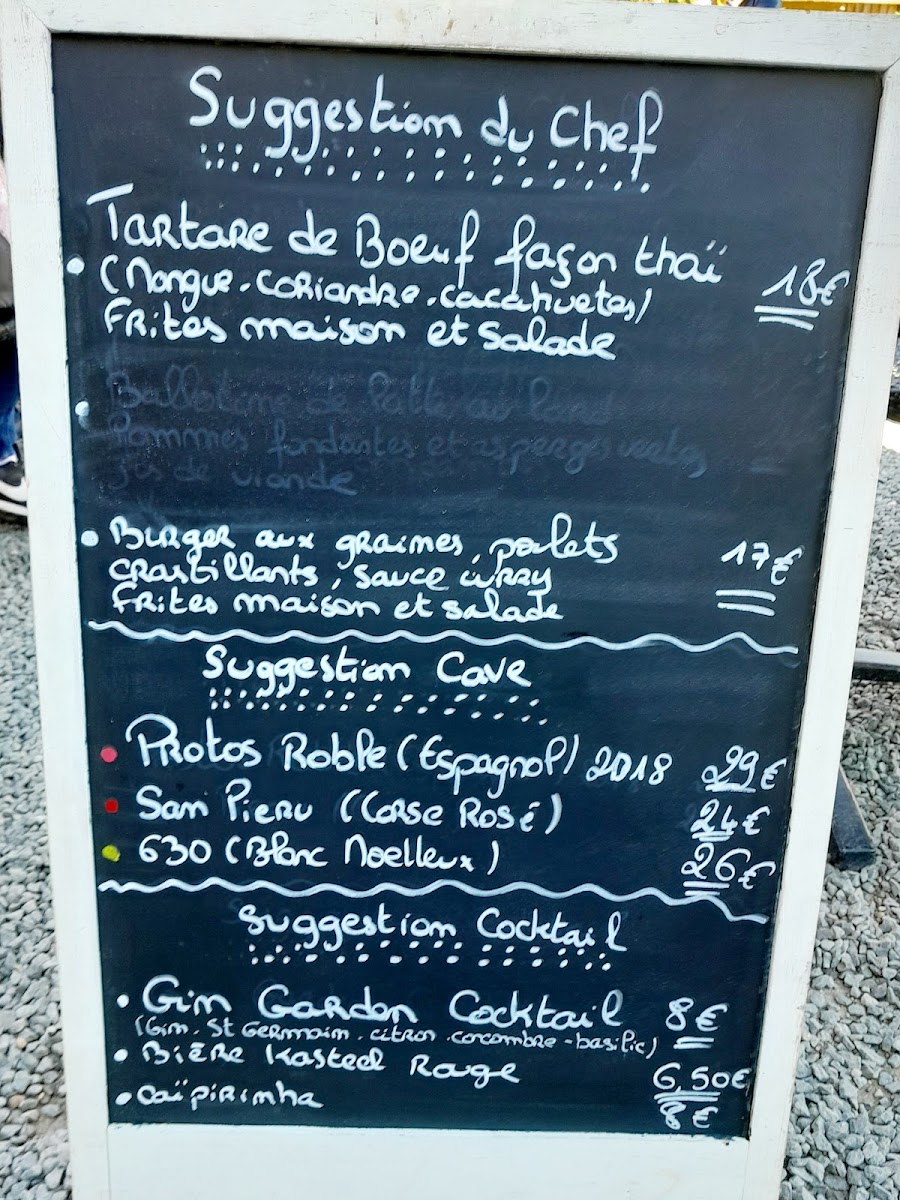 Suggestion du Chef
Tartare de Boeuf façon thaï
(Mangue. coriandre. cacahuetes) 18€
Frites maison et salade
Ballotine de au lard
Pommes fondantes et asperges vertes
jus de viande
Burger aux graines, poulets 17€
crastillants, sauce curry
Frites maison et salade
Suggestion Cave
Protos Roble (Espagnol) 2018 29€
San Pieru (Corse Rosé) 24€
630 (Blanc Moelleux) 26€
Suggestion Cocktail
Gin Garden Cocktail 8€
(Gin. St Germain. citron. concombre-basilic)
Bière Kasteel Rouge 6,50€
caïpirinha 8€